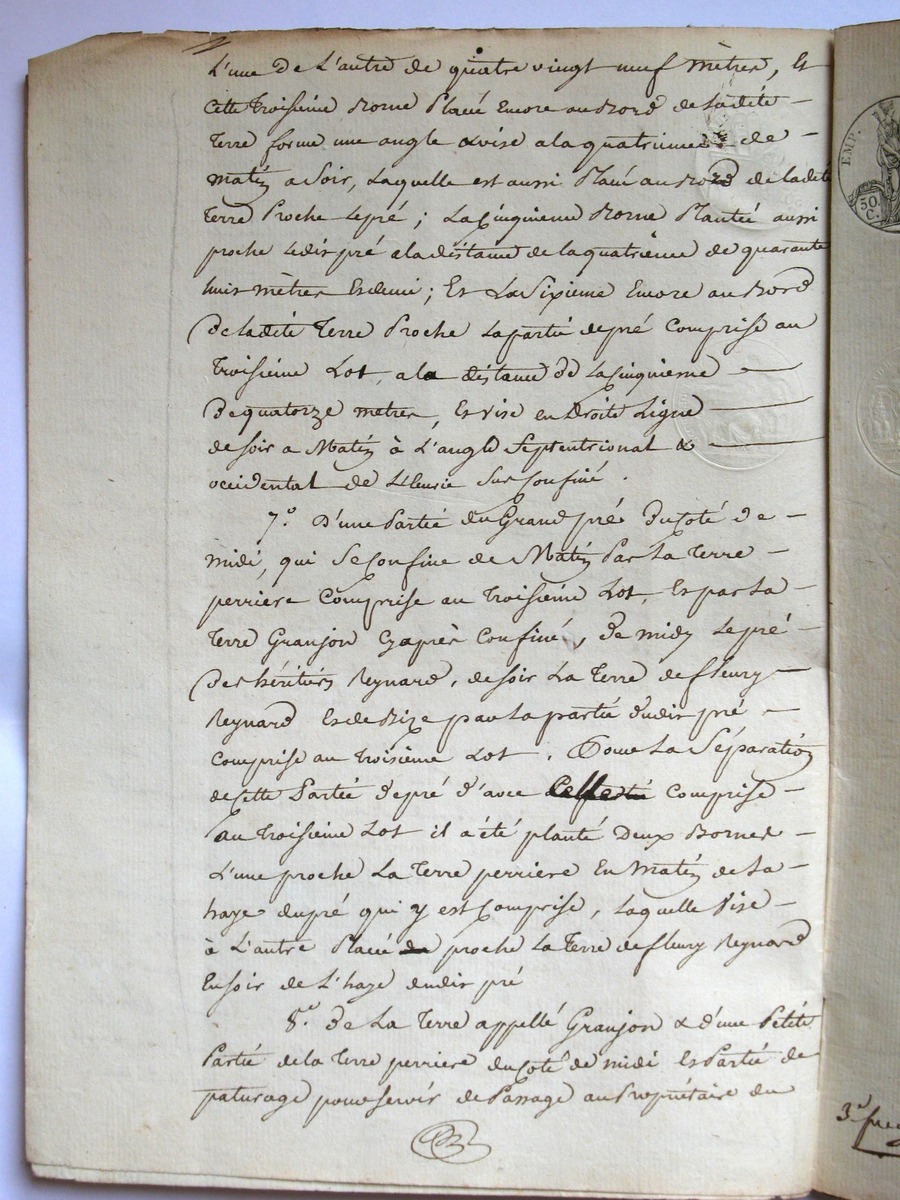 L'une de L'autre de quatre vingt neuf mètres, Et
cette troisieme Borne Placée Encore au Bord de ladite -
Terre forme une angle & vise a la quatrieme de -
matin a Soir, Laquelle est aussi Placée au Bord de ladite
Terre Proche Le pré ; La Cinquieme Borne Plantée aussi
proche Ledit pré a la distance de la quatrieme de quarante
huit mètres Et demi ; Et La Sixieme Encore au Bord
de ladite Terre Proche La partie de pré Comprise au
Troisieme Lot, a la distance de La Cinquieme -
de quatorze metres, Et vise en Droite Ligne -
de soir a Matin à L'angle Septentrional & -
occidental de Sus Confiné.
7.° D'une Partie du Grand pré Du Coté de -
midi, qui Se Confine de Matin Par La Terre -
perriere Comprise au Troisieme Lot, Et par La -
Terre Granjon Cy après Confiné, de midy Le pré -
Des héritiers Reynard, de soir La Terre de fleury
Reynard Et de Bize par La partie dudit pré -
Comprise au Troisieme Lot. Pour La Séparation
de Cette Partie de pré d'avec Comprise -
au Troisieme Lot il a été planté Deux Bornes -
L'une proche La Terre perriere En Matin de La -
haye du pré qui y est Comprise, Laquelle Vise -
à L'autre Placée proche La Terre de fleury Reynard
En soir de L'haye dudit pré
8.° de La Terre appellé Granjon & d'une Petite
Partie de la Terre perriere du Coté de midi Et Partie de
paturage pour servir de Passage au Propriétaire du
EMP.
50
C.
3.e